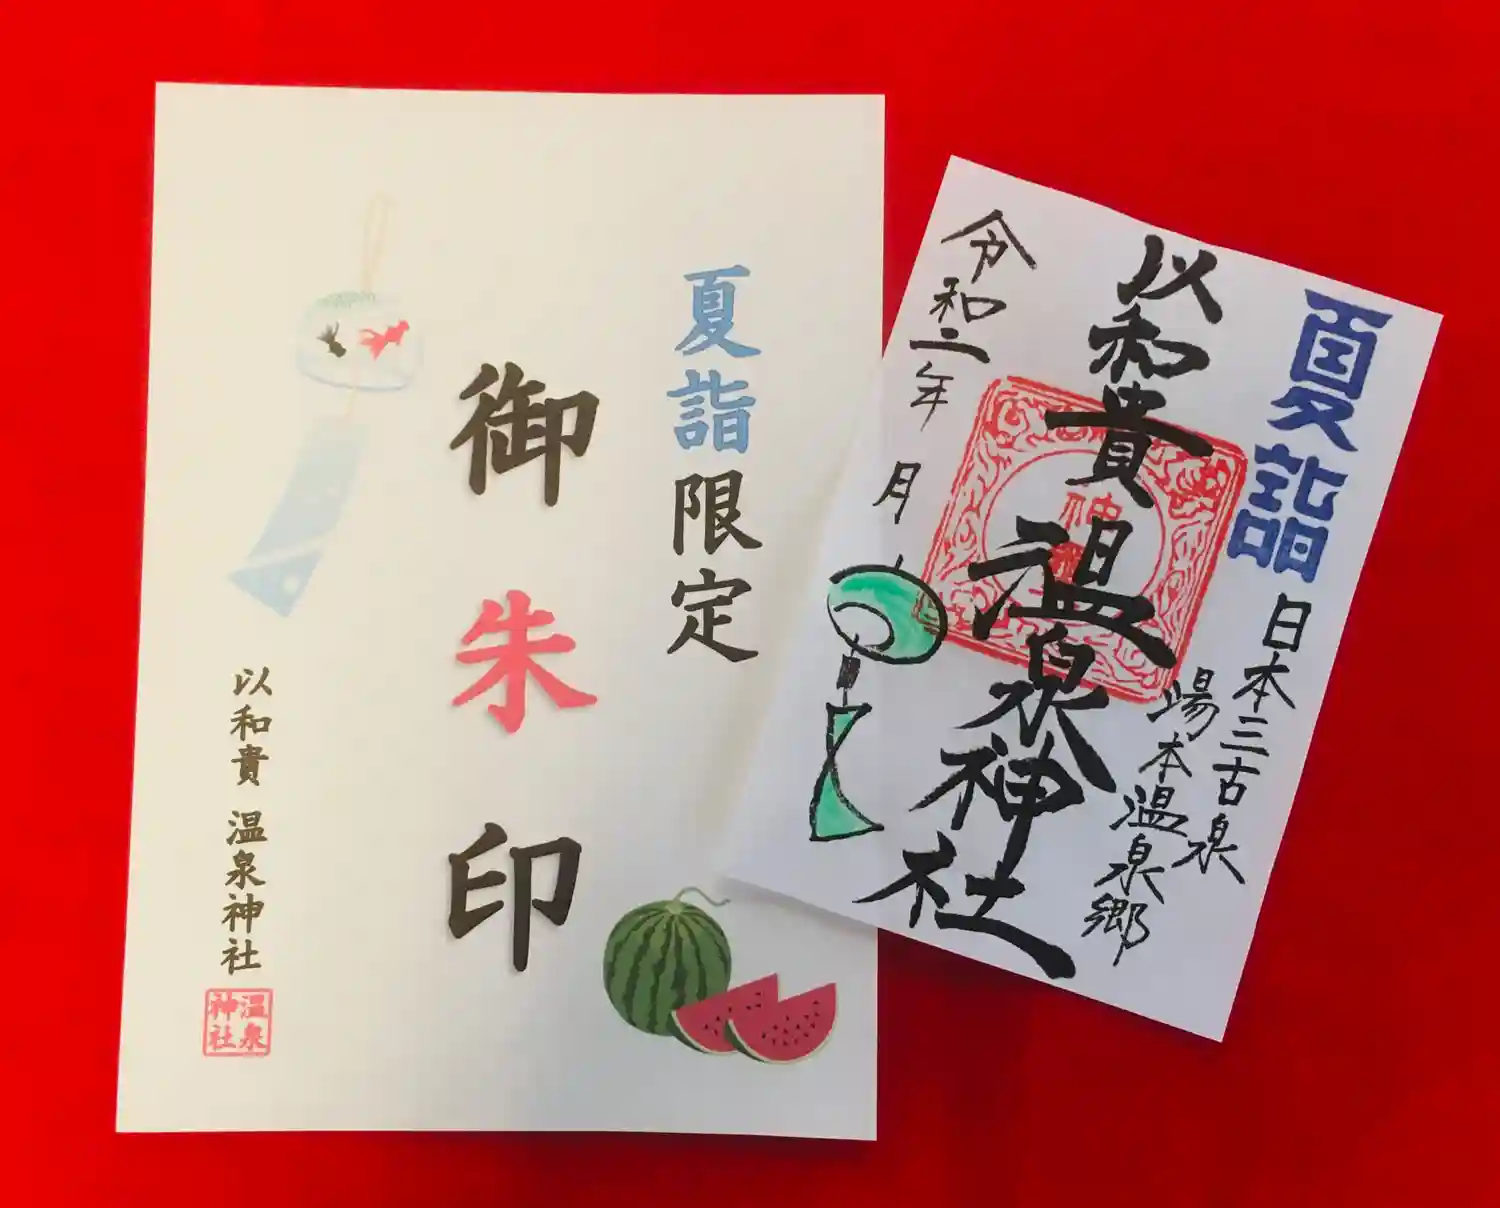 夏詣限定
御朱印
以和貴 温泉神社
温泉
神社
夏詣
日本三古泉
湯本温泉郷
以和貴 温泉神社
令和二年 月